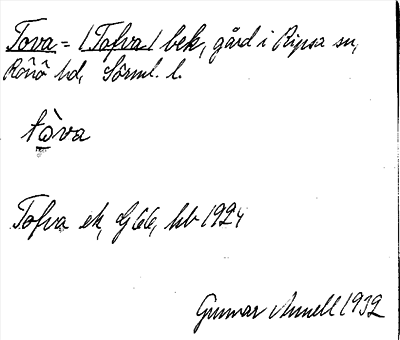 Tova = (Tofva) bek, gård i Ripsa sn,
Rönö hd, Sörml. l.
tòva
Tofva ek, GJ66, hb 1924
Gunnar Annell 1932